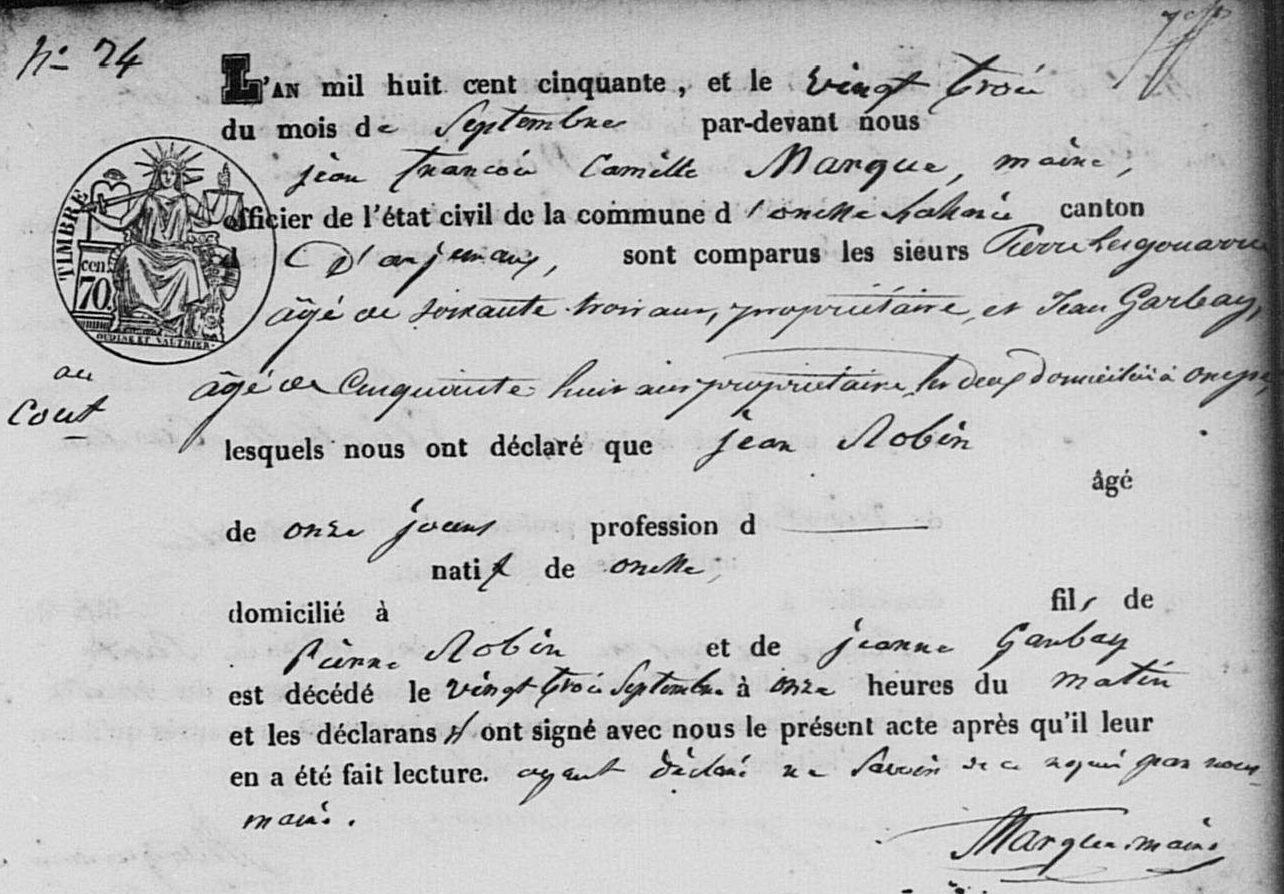 N° 24
L'AN mil huit cent cinquante, et le vingt trois
du mois de Septembre par-devant nous
jean francois Camille Marque, maire,
officier de l'état civil de la commune d'onesse Laharie canton
d D'arjuzanx, sont comparus les sieurs Pierre
âgé de soixante trois ans, propriétaire, et Jean Garbay,
âgé de Cinquante huit ans propriétaire, les deux domiciliés à onesse,
lesquels nous ont déclaré que jean Robin
âgé
de onze jours profession d
natif de onesse,
domicilié à fils de
Pierre Robin et de jeanne Garbay
est décédé le vingt trois Septembre à onze heures du matin
et les déclarans ont signé avec nous le présent acte après qu'il leur
en a été fait lecture. ayant déclaré ne Savoir de ce requis par nous
maire.
Marque maire
TIMBRE
cen
70
OUDINE ET VAUTHIER
au
Cout